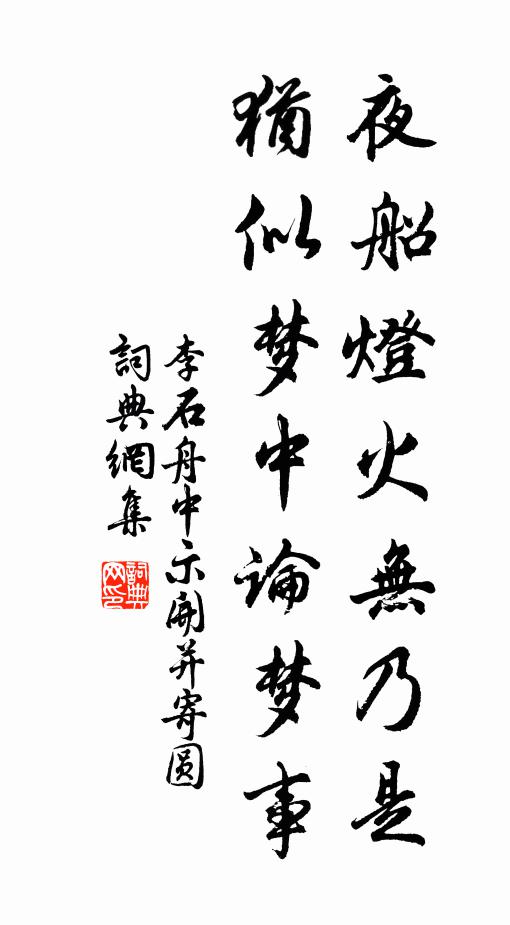 夜船燈火無乃是
猶似梦中論梦事
李石舟中示開并寄圆
詞典網集
詞典网印